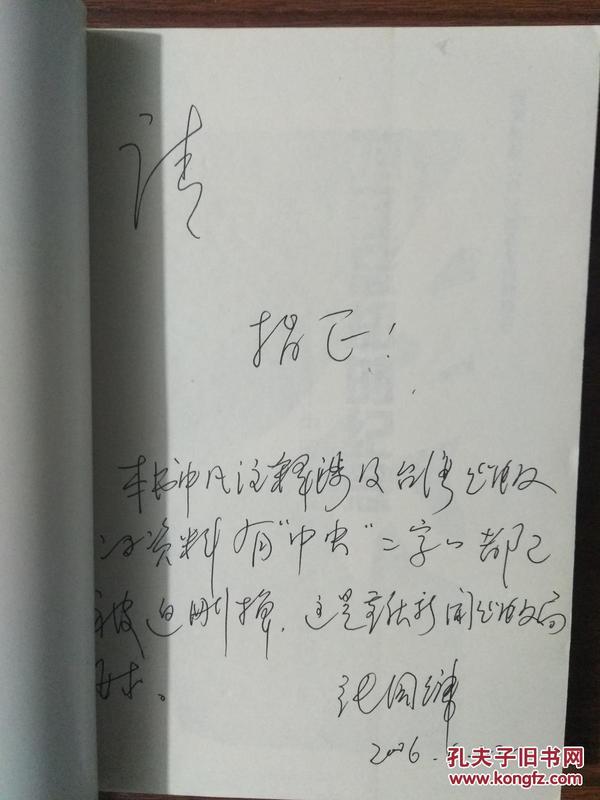 请
指正!
本书中凡注释涉及台湾出版
的资料有“中央”二字,都已
被迫删掉。这是章新闻出版局
要求。
张国继
2006.
孔夫子旧书网
www.kongfz.com